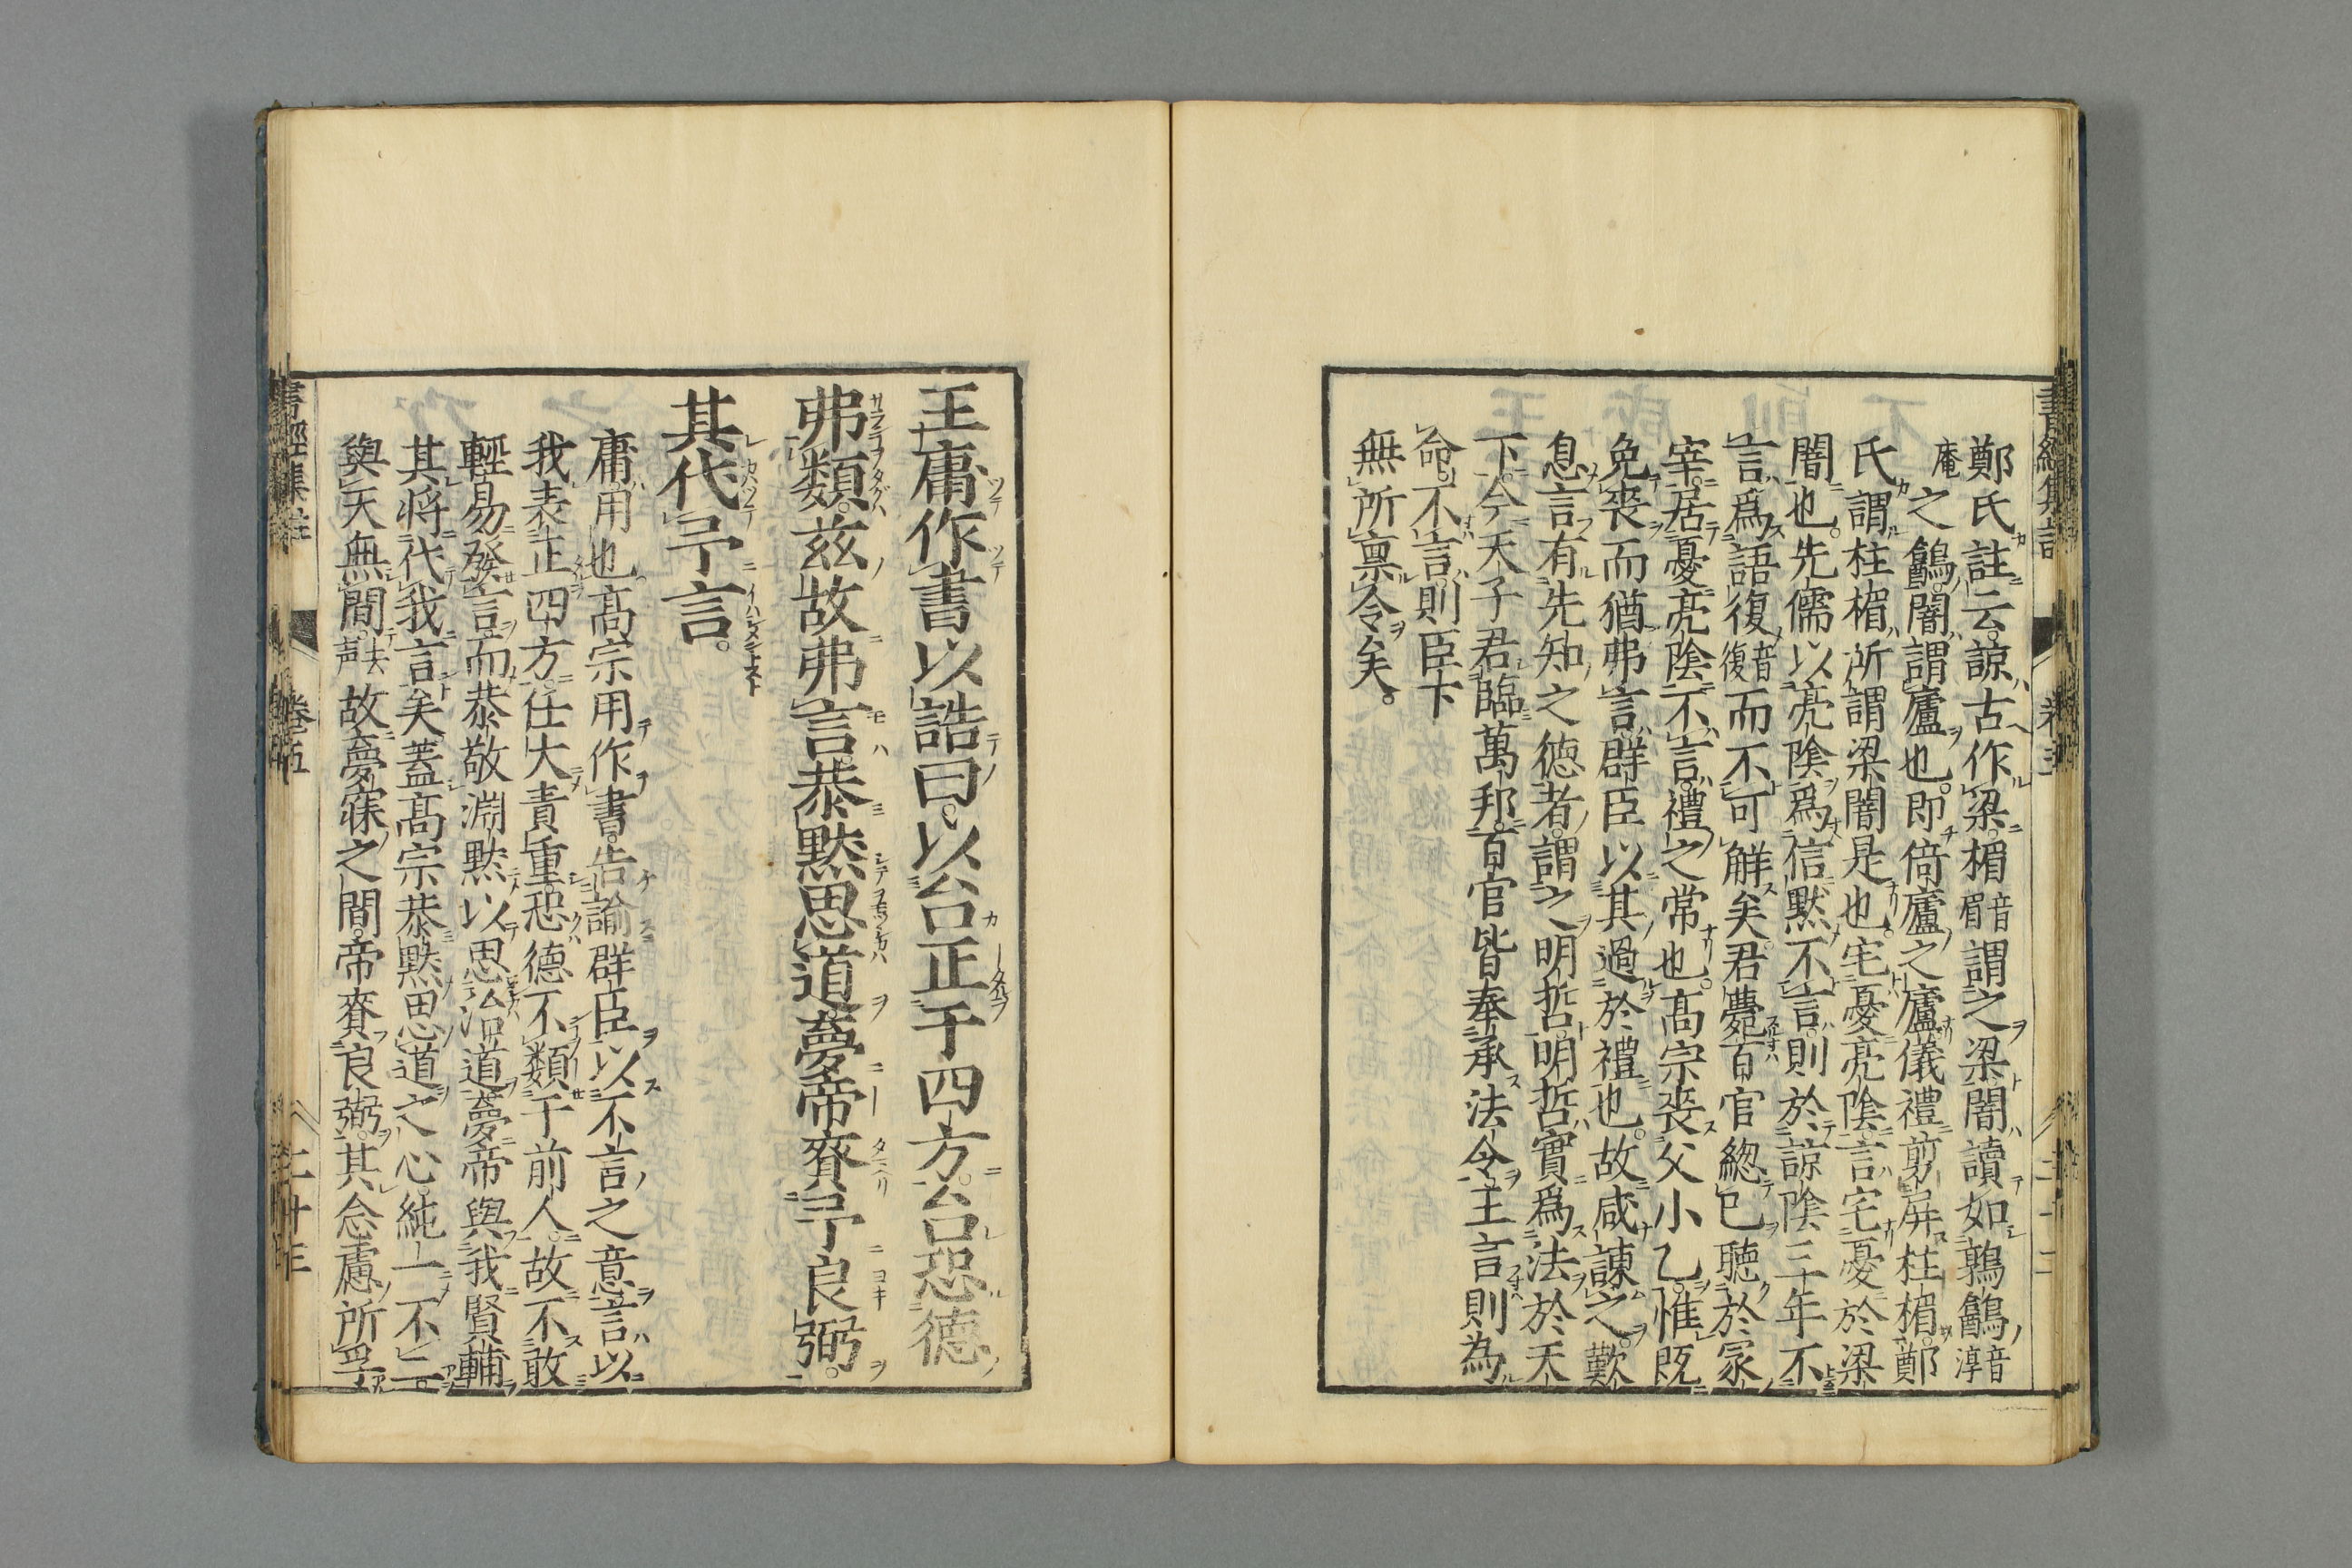 鄭氏註云。諒古作梁。楣音眉謂之梁闇讀如鶉鷂音淳
庵之鷂。闇謂廬也。即倚廬之廬儀禮剪屏柱楣。鄭
氏謂柱楣所謂梁闇是也。宅憂亮陰。言宅憂於梁
闇也。先儒以亮陰爲信黙不言。則於諒陰三年不
言爲語復音復而不可解矣。君薨百官總已聽於冢
宰。居憂亮陰不言。禮之常也。高宗喪父小乙。惟既
免喪而猶弗言。群臣以其過於禮也。故咸諫之。歎
息言有先知之德者。謂之明哲。明哲實爲法於天
下。今天子君臨萬邦。百官皆奉承法令。王言則為
命。不言。則臣下
無所禀令矣。
王庸作書以誥曰。以台正于四方。台恐德
弗類。茲故弗言。恭黙思道。夢帝賚予良弼。
其代予言。
庸。用也。高宗用作書。告諭群臣以不言之意。言以
我表正四方。任大責重。恐德不類于前人。故不敢
輕易發言。而恭敬淵黙以思治道。夢帝與我賢輔
其将代我言矣。蓋高宗恭黙思道之心。純一不二。
與天無間。去声故夢寐之間。帝賚良弼。其念慮所孚
書經集註 卷五 二十三